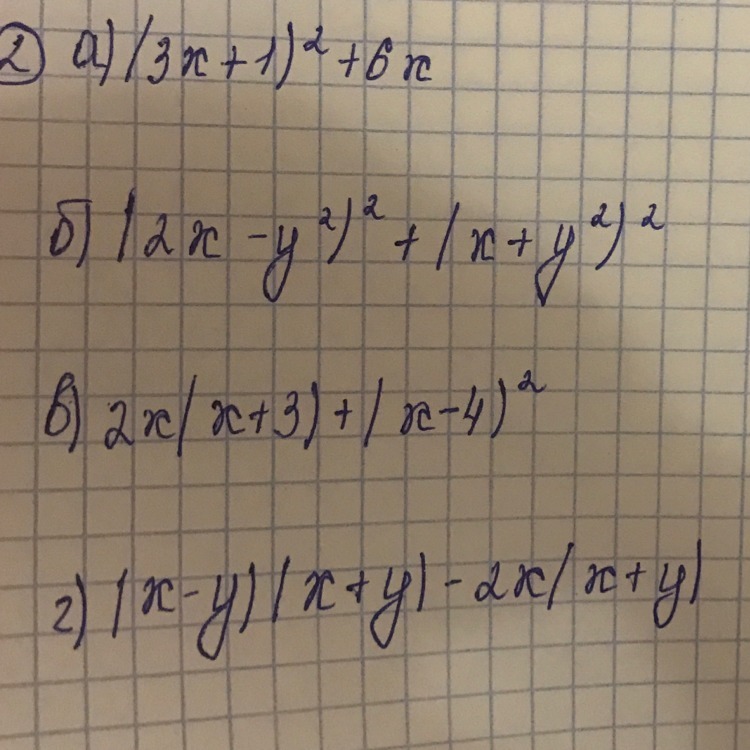 ② а) (3x+1)² + 6x
б) (2x - y²)² + (x + y²)²
в) 2x(x+3) + (x-4)²
г) (x-y)(x+y) - 2x(x+y)